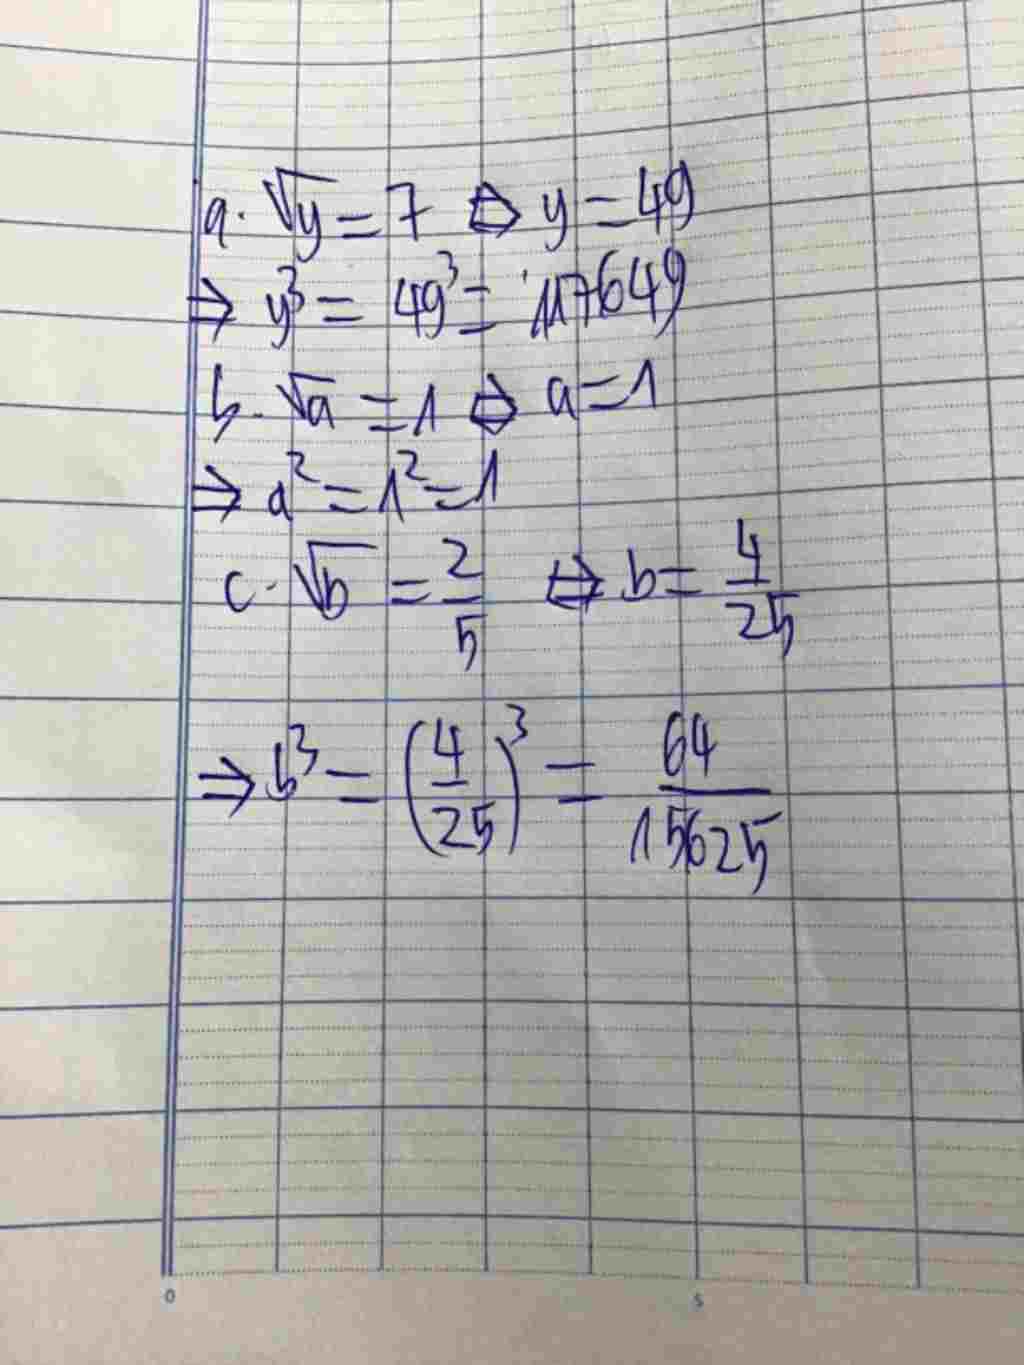 a. √y = 7 ⇔ y = 49
⇒ y³ = 49³ = 117649
b. √a = 1 ⇔ a = 1
⇒ a² = 1² = 1
c. √b = 2/5 ⇔ b = 4/25
⇒ b³ = (4/25)³ = 64/15625
0 5